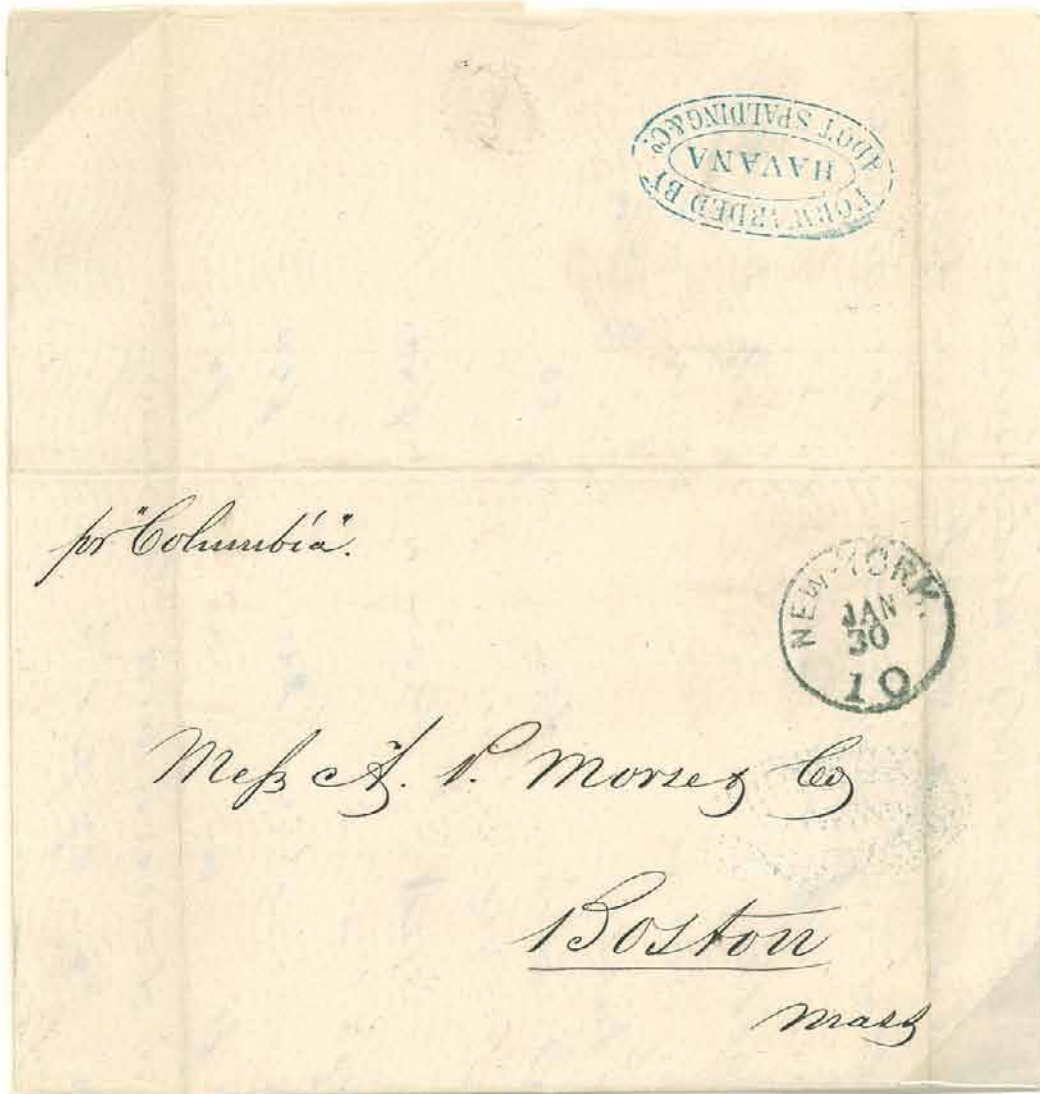 FORWARDED BY
ADOT SPALDING & Co.
HAVANA
pr "Columbia".
NEW-YORK.
JAN
30
10
Messs A. P. Morse & Co
Boston
Mass